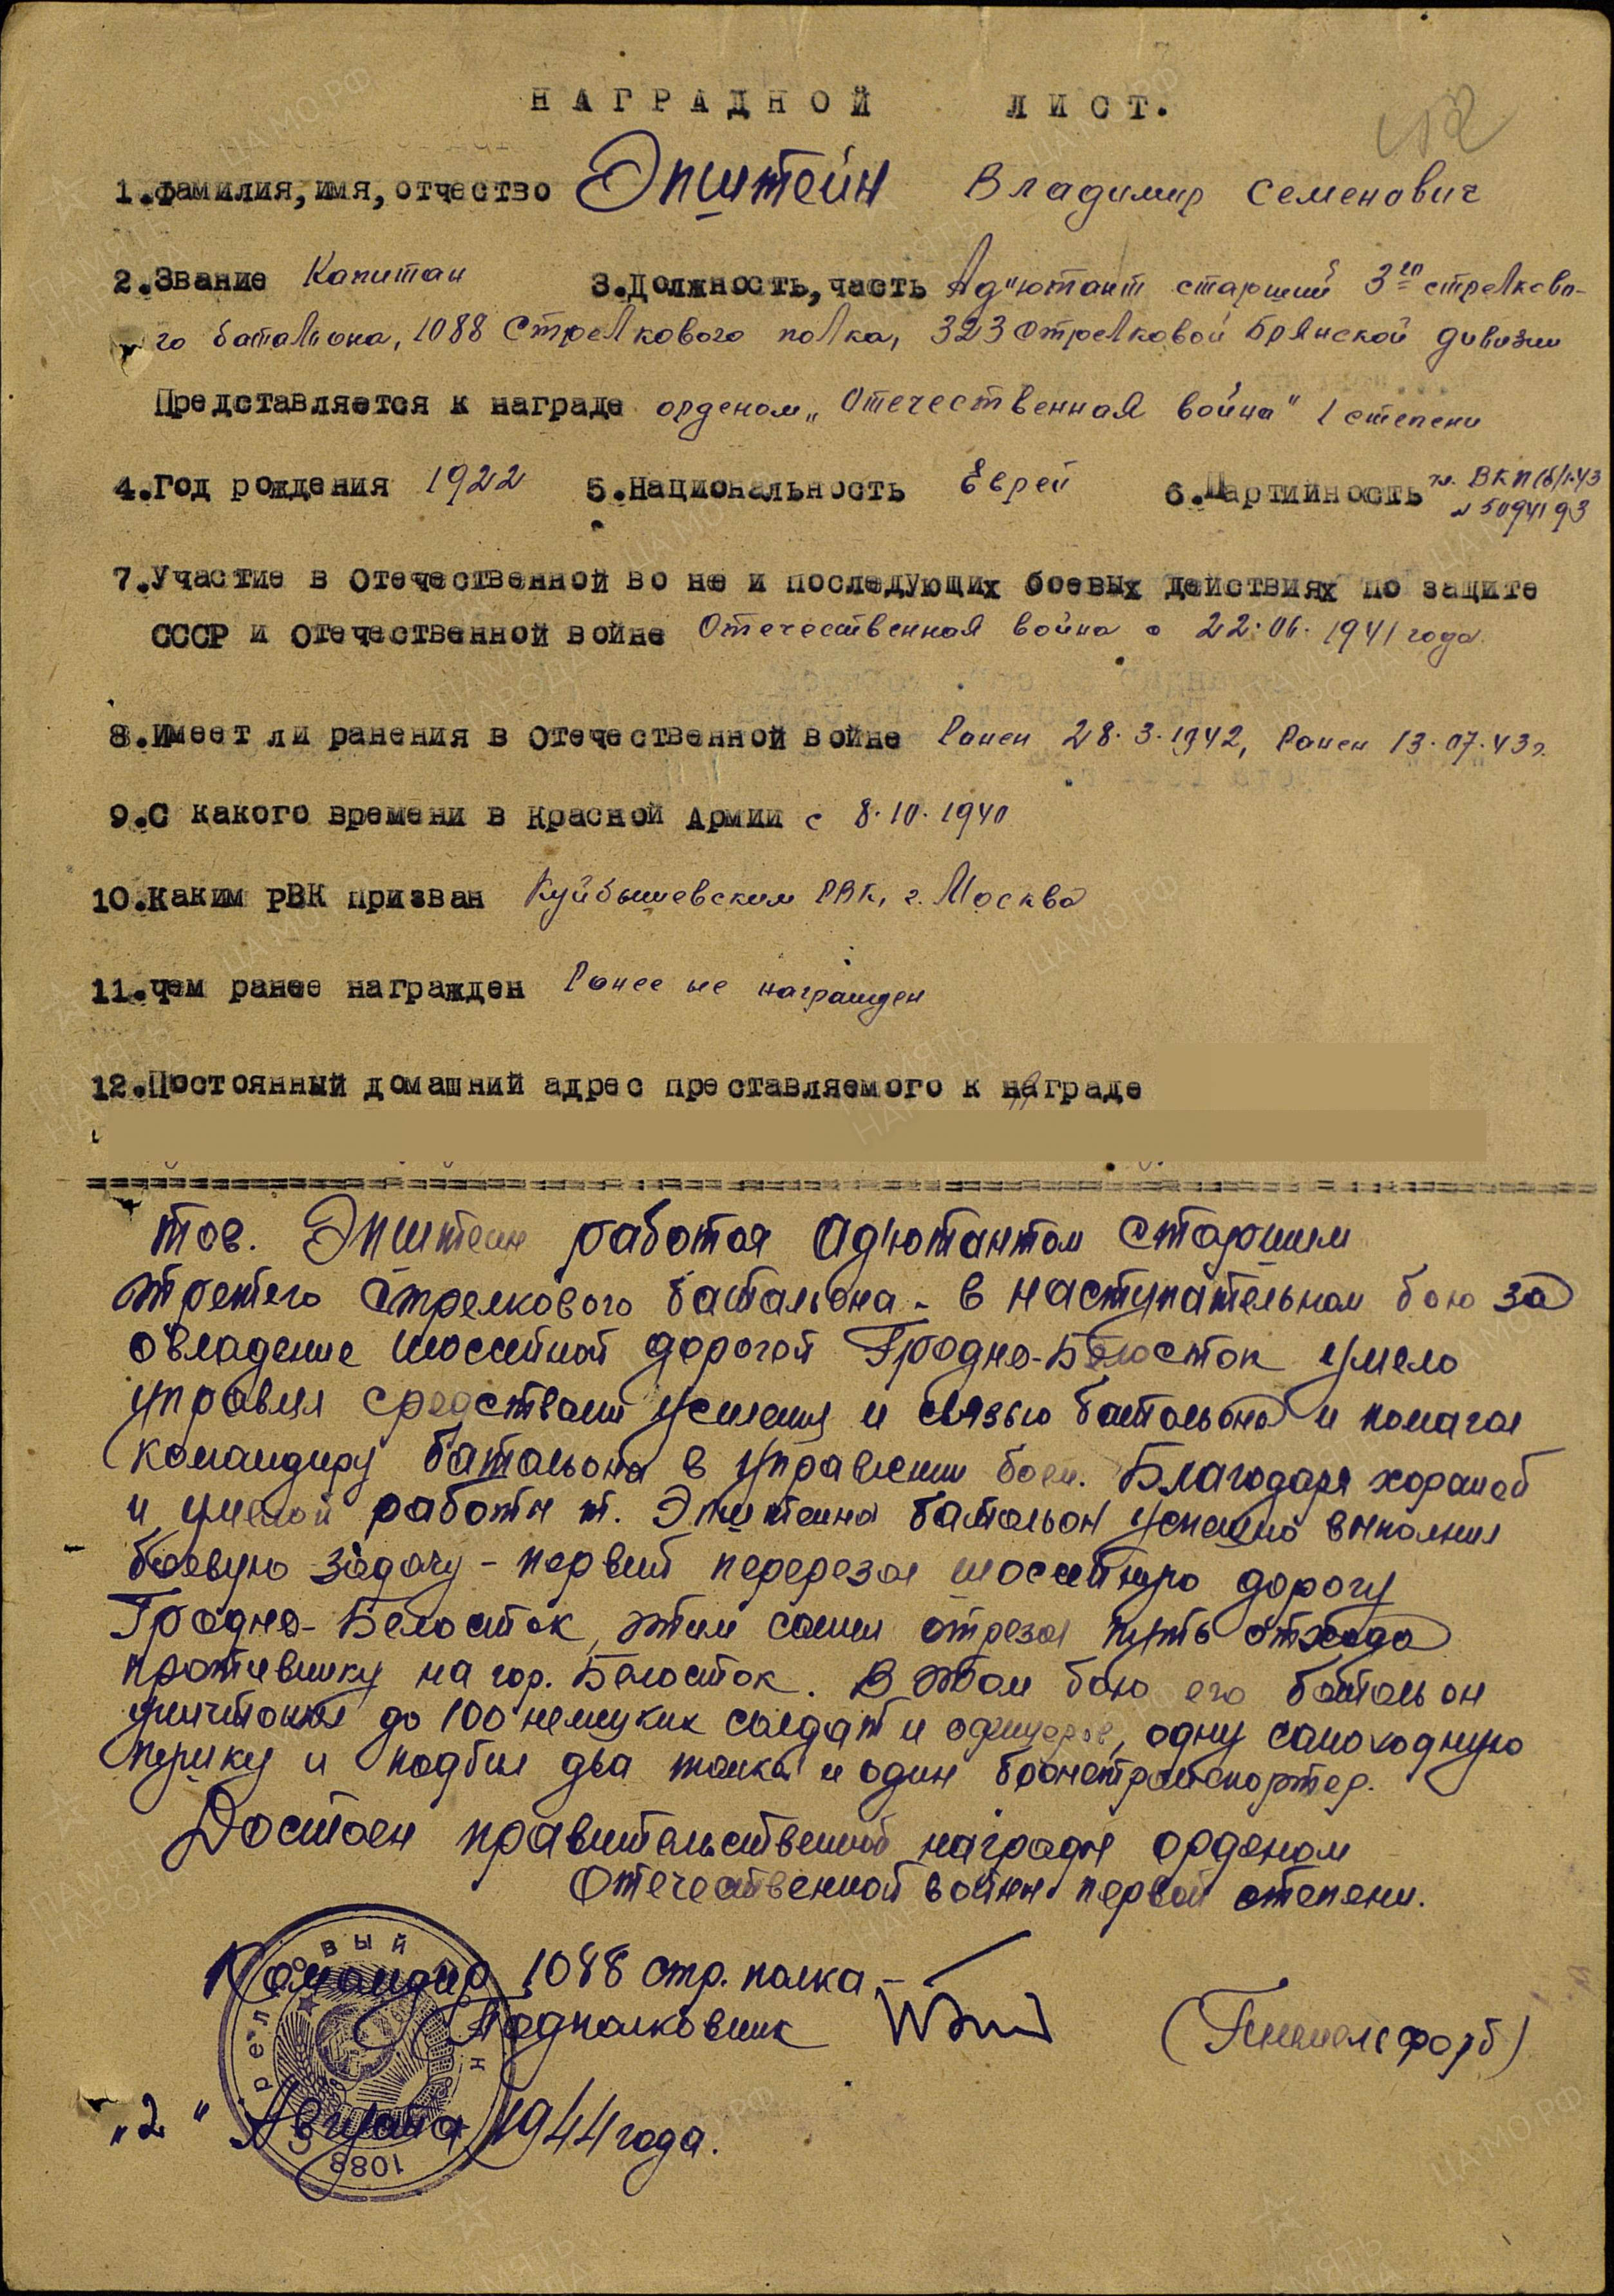 НАГРАДНОЙ ЛИСТ.
1.Фамилия, имя, отчество Эпштейн Владимир Семенович
2.Звание Капитан 3.Должность, часть Ад"ютант старший 3го стрелково-
го батальона, 1088 Стрелкового полка, 323 стрелковой Брянской дивизии
Представляется к награде орденом „Отечественная война" 1 степени
4.Год рождения 1922 5.Национальность Еврей 6.Партийность чл. ВКП(б) 1.43
№ 5094193
7.Участие в Отечественной во не и последующих боевых действиях по защите
СССР и Отечественной войне Отечественная война с 22.06.1941 года.
8.Имеет ли ранения в Отечественной войне Ранен 28.3.1942, Ранен 13.07.43 г.
9.С какого времени в Красной Армии с 8.10.1940
10.Каким РВК призван Куйбышевским РВК, г. Москва
11.чем ранее награжден Ранее не награжден
12.Постоянный домашний адрес преставляемого к награде
тов. Эпштейн работая Адъютантом Старшим
третьего Стрелкового батальона - в наступательном бою за
овладение шоссейной дорогой Гродно-Белосток умело
управлял средствами усиления и связью батальона и помогал
командиру батальона в управлении боем. Благодаря хорошей
и умелой работы т. Эпштейна батальон успешно выполнил
боевую задачу - первый перерезал шоссейную дорогу
Гродно-Белосток, этим самым отрезал путь отхода
противнику на гор. Белосток. В этом бою его батальон
уничтожил до 100 немецких солдат и офицеров, одну самоходную
пушку и подбил два танка и один бронетранспортер.
Достоен правительственной награды орденом
Отечественной войны первой степени.
Командир 1088 стр. полка -
Подполковник (Гинельсфорб)
„2" Августа 1944 года.
1088